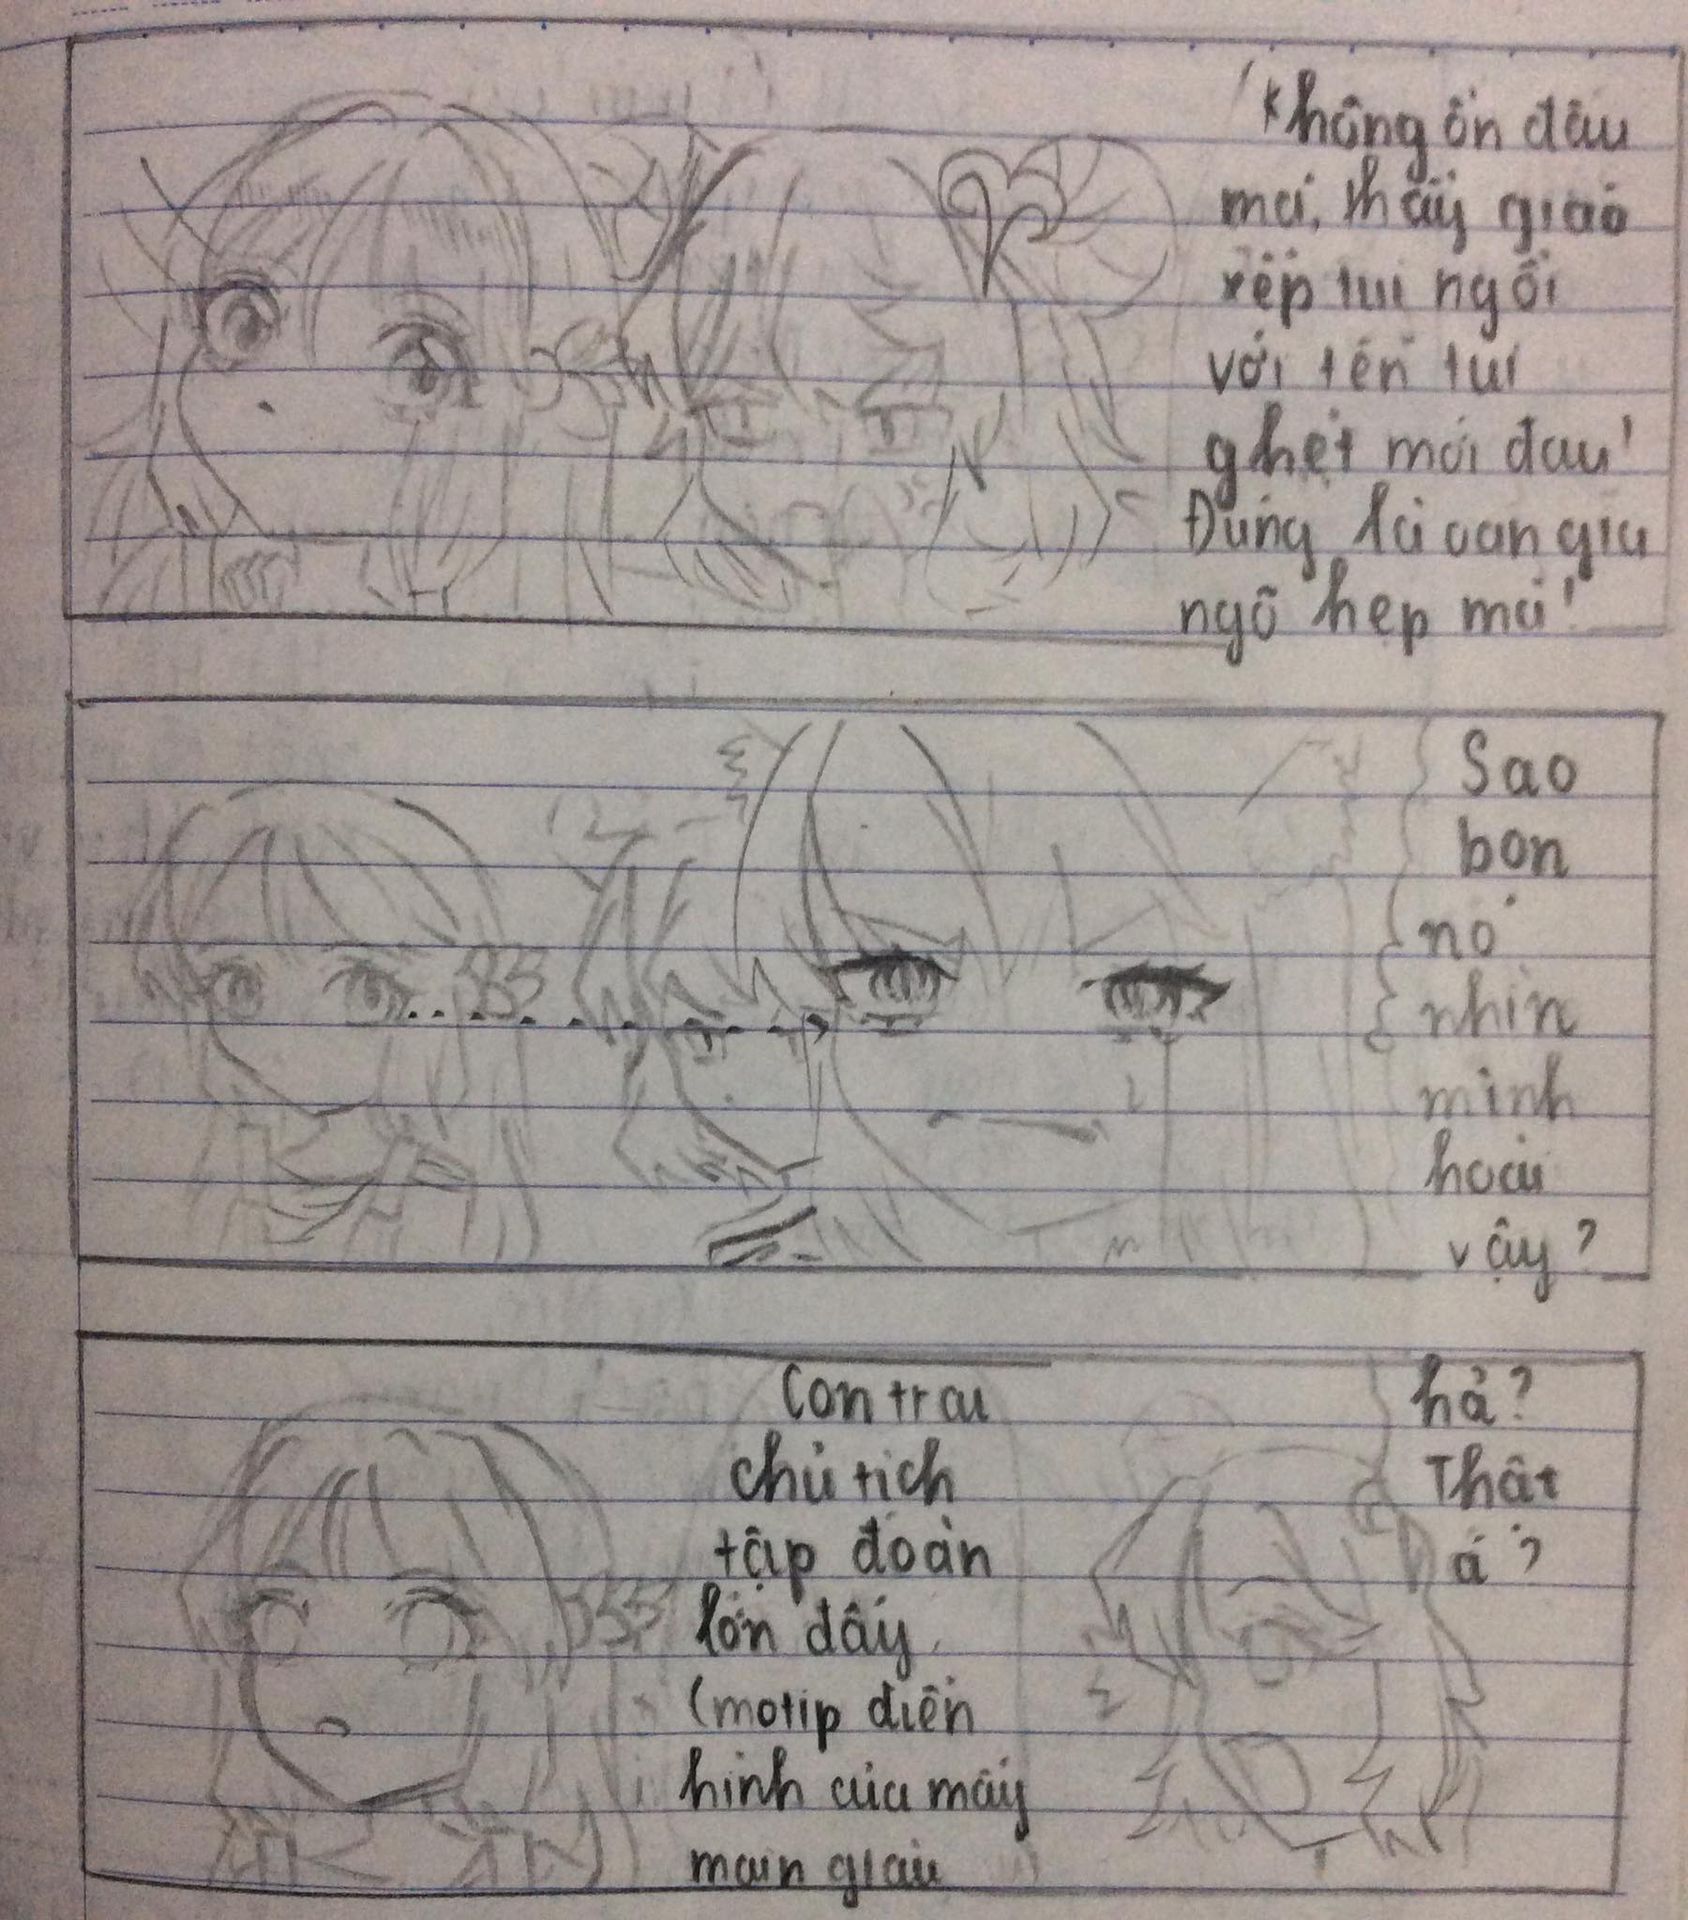 Không ổn đâu
má, thầy giáo
xếp tui ngồi
với tên tui
ghét mới đau!
Đúng là oan gia
ngõ hẹp mà!
Sao
bọn
nó
nhìn
mình
hoài
vậy?
Con trai
chủ tịch
tập đoàn
lớn đấy
(motip điển
hình của mấy
main giàu
hả?
Thật
á?